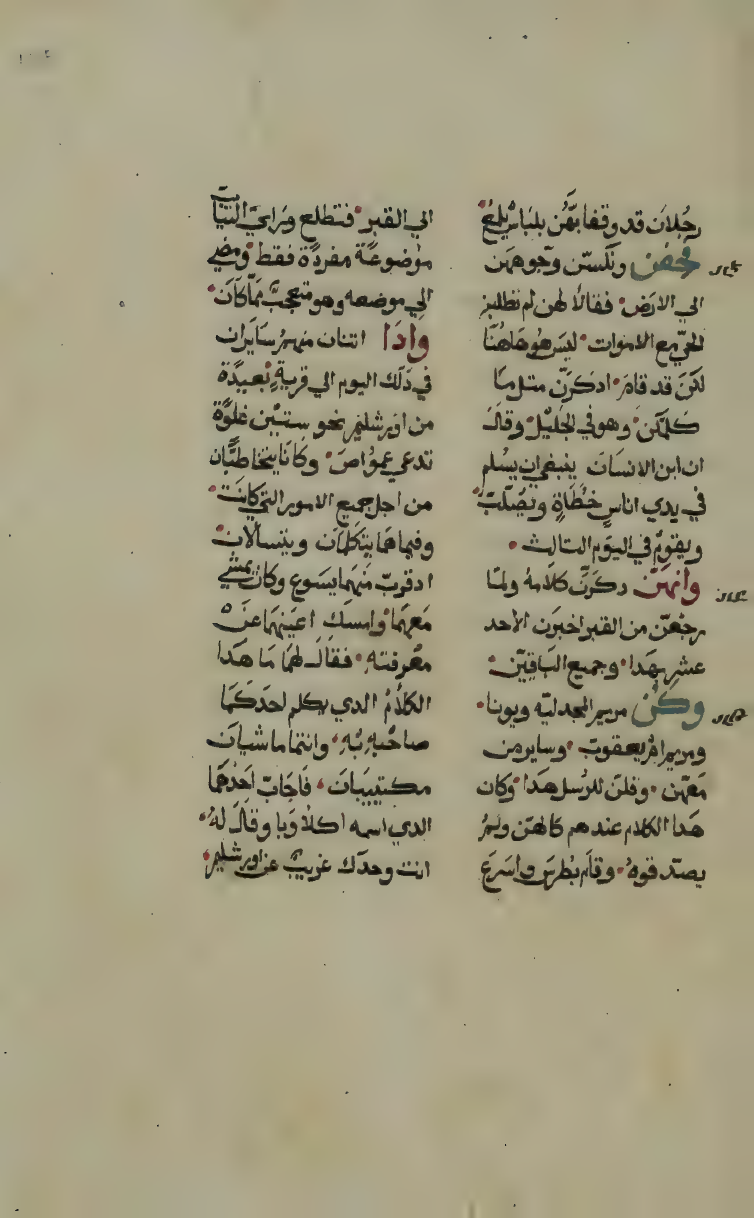 رجلان قد وقفا بهن بلباس يلمع
فخفن ونكسن وجوههن
الي الارض فقالا لهن لم تطلبن
الحي مع الاموات ليس هو هاهنا
لكن قد قام ادكرن متل ما
كلمكن وهو في الجليل وقال
ان ابن الانسان ينبغي ان يسلم
في يدي اناس خطاة ويصلب
ويقوم في اليوم التالت
وانهن دكرن كلامه ولما
رجعن من القبر اخبرن الاحد
عشر بهدا وجميع الباقين
وكن مريم المجدليه ويونا
ومريم ام يعقوب وساير من
معهن وقلن للرسل هدا وكان
هدا الكلام عندهم كالهزو ولم
يصدقوه وقام بطرس واسرع
الي القبر فتطلع وراي التياب
موضوعة مفردة فقط ومضي
الي موضعه وهو متعجب مما كان
وادا اتنان منهم سايران
في دلك اليوم الي قرية بعيدة
من اورشليم نحو ستين غلوة
تدعي عمواص وكانا يتخاطبان
من اجل جميع الامور التي كانت
وفيما هما يتكلمان ويتسالان
ادقرب منهما يسوع وكان يمشي
معهما وامسك اعينهما عن
معرفته فقال لهما ما هدا
الكلام الدي يكلم احدكما
صاحبه به وانتما ماشيان
مكتيبان فاجاب احدهما
الدي اسمه اكلاوبا وقال له
انت وحدك غريب عن اورشليم